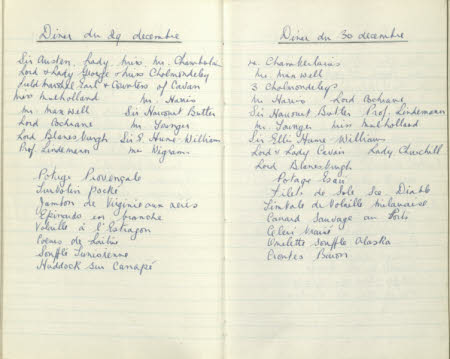 Diner du 29 decembre
Sir Austen, Lady, miss, mr. Chamberlain
Lord & Lady George & miss Cholmondeley
Field marshall Earl & Countess of Cavan
miss mulholland mr. Harris
mr. maxwell Sir Harcourt Butler
Lord Bochane mr Younger
Lord Blanesburgh Sir E. Hume-Williams
Prof. Lindemann mr Wigram
Potage Provençale
Turbotin poché
Jambon de Virginie aux
Epinards en branche
Volaille à l'Estragon
Coeurs de Laitue
Soufflé
Haddock sur Canapé
Diner du 30 decembre
4. Chamberlains
mr. maxwell
3 Cholmondelys
mr Harris Lord Bochane
Sir Harcourt Butler Prof. Lindemann
mr Younger miss mulholland
Sir Ellis Hume-Williams
Lord & Lady Cavan Lady Churchill
Lord Blanesburgh
Potage Esaü
Filets de Sole Sce Diable
Timbale de Volaille milanaise
Canard Sauvage au Porto
Céleri braisé
Omelette Soufflé Alaska
Croutes Baron